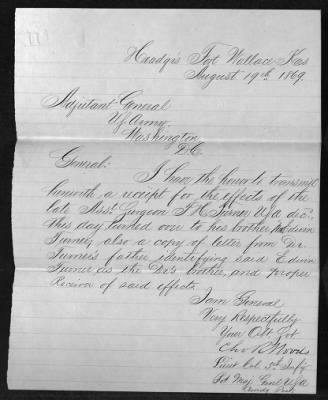 Headqrs Fort Wallace Kas
August 19th 1869.
Adjutant General
U.S. Army
Washington
D.C.
General:
I have the honor to transmit
herewith, a receipt for the effects of the
late Asst. Surgeon T. H. Turner U.S.A. dec'd
this day turned over to his brother Mr Edwin
Turner, also a copy of letter from Dr.
Turner's father identifying said Edwin
Turner as the Dr's brother, and proper
Receiver of said effects.
I am General
Very Respectfully
Your Obt Svt
Chs R Woods
Lieut Col. 5th Inf'y
Bvt Maj. Genl U.S.A
Comdg Post